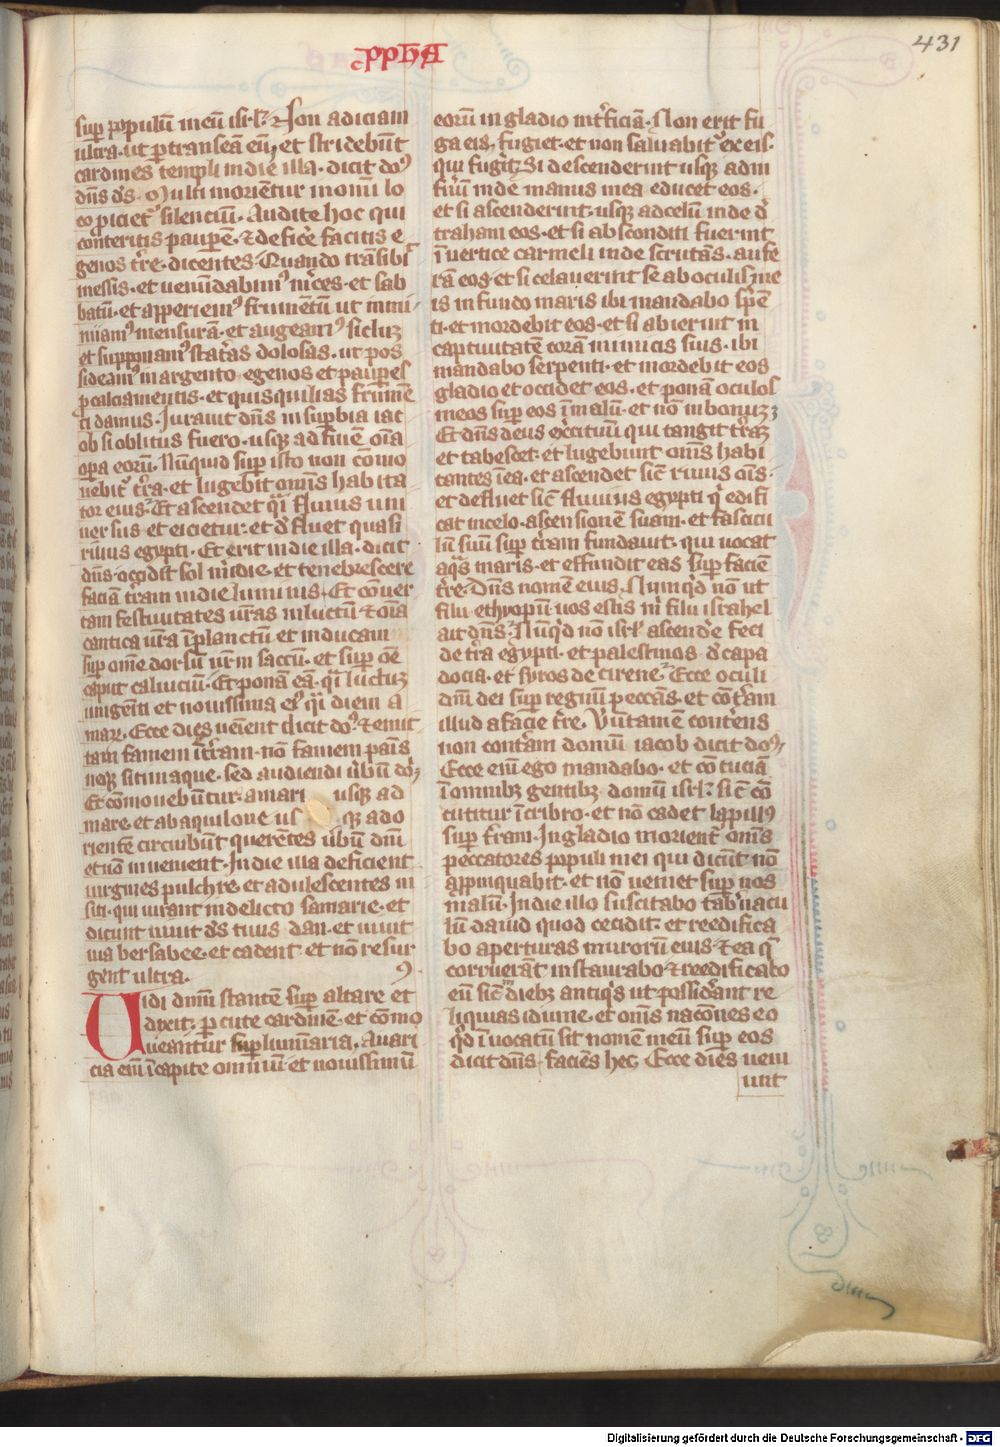 431
pphA
sup populū meū isrl. Non adiciam
ultra ut ptranseā eū, et stridebūt
cardines templi in die illa. dicit do9
dn̄s ds. Multi morientur in omni lo
co piciet᷑ silenciū. Audite hoc qui
conteritis paupeē. ⁊ deficē facitis e
genos t're. dicentes. Quando transib;
messis. et uenūdabim9 m'ces. et sab
batū. et apperiem9 frumentū ut immi
nuam9 mensurā. et augeam9 siclū
et supponam9 stat'as dolosas. ut pos
sideam9 in argento egenos et paupes
p calciamentis. et quisquilias frumē
ti damus. Iurauit dn̄s in supbia iac
ob si oblitus fuero. usq; ad finē om̄a
opa eorū. Nūnquid sup isto non cōmo
uebit᷑ t'ra. et lugebit omnis habita
tor eius. Et ascendet qi fluuius uni
uersus et eicietur. et d'fluet quasi
riuus egypti. Et erit in die illa. dicit
dn̄s. occidet sol m'idie. et tenebrescere
faciā t'ram in die luminis. Et conuer
tam festiuitates ur̄as in luctū. ⁊ om̄a
cantica ur̄a ī planctū. et inducam
sup om̄e dorsū ur̄m saccū. et sup om̄e
caput caluiciū. Et ponā eā. qi luctū
unigeniti et nouissima ei9 qi diem a
mar. Ecce dies uenient dicit do9. ⁊ emit
tam famem ī t'ram. nō famem panis
neq; sitim aque. sed audiendi u'bū do'
Et cōmouebūtur. a mari usq; ad
mare. et ab aquilone us q; ad o
rientē circuibūt querētes u'bū dn̄i
et nō inuenient. In die illa deficient
uirgines pulchre. et adulescentes in
siti. qui iurant in delicto samarie. et
dicunt uiuit ds tuus dan. et uiuit
uia bersabee. et cadent. et nō resur
gent ultra. 9.
Uidi dn̄m stantē sup altare et
dixit. pcute cardinē. et cōmo
ueantur supliminaria. Auari
cia eni ī capite omniū. et nouissimū
eorū in gladio int'ficiā. Non erit fu
ga eis. fugiet. et non saluabit᷑ ex eis.
qui fugit᷑. Si descenderint usq; ad in
fnū inde manus mea educet eos.
et si ascenderint. usq; ad celū inde d'
traham eos. et si absconditi fuerint
ī uertice carmeli inde scrutās. aufe
rā eos. et si celauerint se ab oculis me
is in fundo maris ibi mandabo sp̄en
ti. et mordebit eos. et si abierint in
captiuitatē corā inimicis suis. ibi
mandabo serpenti. et mordebit eos
gladio et occidet eos. et ponā oculos
meos sup eos ī malū. et nō in bonū.
Et dn̄s deus exercituū qui tangit t'rā
et tabescet. et lugebunt om̄s habi
tantes ī ea. et ascendet sic' riuus om̄s.
et defluet sic' fluuius egypti qi edifi
cat in celo. ascensionē suam. et fascicu
lū suū sup t'ram fundauit. qui uocat
aq̄s maris. et effundit eas sup faciē
t're. Dn̄s nomen eius. Nunqid nō ut
filii ethyopū uos estis m' filii israhel
ait dn̄s. Nūqid nō isrl' ascend'e feci
de t'ra egypti. et palestinos d' capa
docia. et syros de cirene. Ecce oculi
dn̄i dei sup regnū peccās. et cōt'am
illud a facie t're. Vūtamē conterēs
non cont'am domū iacob dicit do9.
Ecce eni ego mandabo. et cōcuciā
ī omnib; gentib; domū isrl'. sic' cō
cutitur ī cribro. et nō cadet lapill9
sup t'ram. In gladio morient᷑ om̄s
peccatores populi mei qui dicūt nō
appinquabit. et nō ueniet sup nos
malū. In die illo suscitabo tab'nacu
lū dauid quod cecidit. et reedifica
bo aperturas murorū eius. ⁊ ea q̄
corruerāt instaurabo ⁊ reedificabo
eū sic' ī dieb; antiqis ut possideant re
liquias idumee. et om̄s nacōnes eo
qd ī uocatū sit nomen meū sup eos
dicit dn̄s faciēs hec. Ecce dies ueni
unt
Digitalisierung gefördert durch die Deutsche Forschungsgemeinschaft - DFG